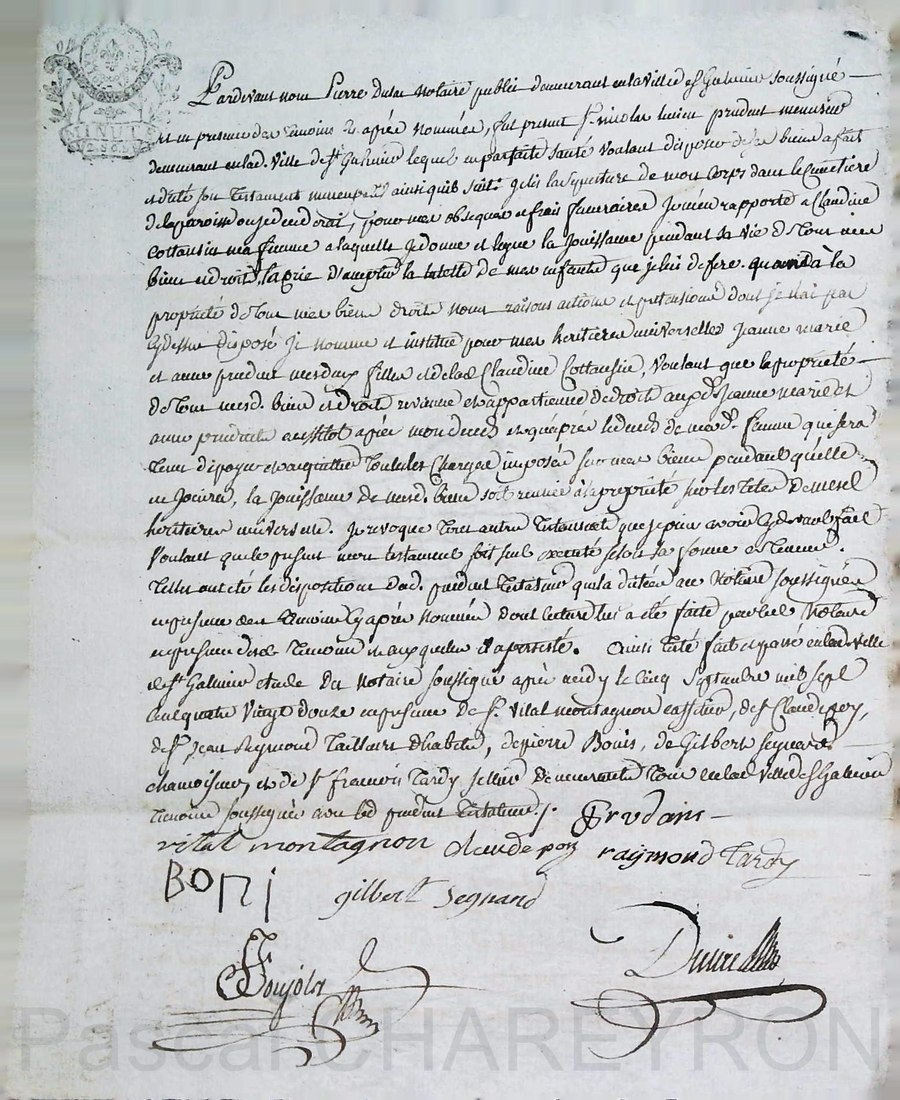 MINUTE
Pardevant nous Pierre notaire public demeurant en la ville de St Galmier soussigné
et en presence des temoins cy après nommés, fut present Sr nicolas prudent menuisier
demeurant en lad. ville de St Galmier lequel en parfaite santé voulant disposer de ses biens a fait
et dicté son testament nuncupatif ainsi quil suit: la sepulture de mon corps dans le cimetière
de la paroisse ou je decederai, pour mes obseques et frais funeraires je m'en rapporte a Claudine
Cottansin ma femme a laquelle je donne et legue la jouissance pendant sa vie de tous mes
biens et droits, la prie d'accepter la tutelle de mes enfants que je lui defere. quand à la
propriété de tous mes biens droits noms raisons actions et pretensions dont je n'ai pas
cydessus disposé je nomme et institue pour mes heritieres universelles Jeanne marie
et anne prudent mes deux filles et de lad Claudine Cottansin, voulant que la propriété
de tous mesd. biens et droits revienne et appartienne de droit auxd. Jeanne marie et
anne prudent aussitot après mon deces et qu'après le deces de mad. femme qui sera
tenue de payer et acquitter toutes les charges imposées sur mes biens pendant qu'elle
en jouira, la jouissance de mesd. biens soit reunie à la propriété sur les tetes de mesd
heritieres universelles. Je revoque tout autre testament que je puis avoir cydevant fait
voulant que le present mon testament soit seul executé selon sa forme et teneur.
Telles ont été les dispositions dud. prudent testateur qui la dictées au notaire soussigné
en presence des temoins cy après nommés dont lecture lui a été faite par led notaire
en presence desd. temoins et auxquelles il a persisté. Ainsi testé fait et passé en lad ville
de St Galmier etude du notaire soussigné après midy le cinq septembre mil sept
cent quatre vingt douze en presence de Sr. Vital montagnon, de Sr Claude
de Sr jean Reymond tailleur d'habits, de pierre Bonis, de Gilbert Segnard
chamoiseur et de Sr francois Tardy sellier demeurants tous en lad ville de St Galmier
temoins soussignés avec led prudent testateur./. Prudans
vital montagnon claude raymond Tardy
BONI gilbert Segnard
Pascal CHAREYRON